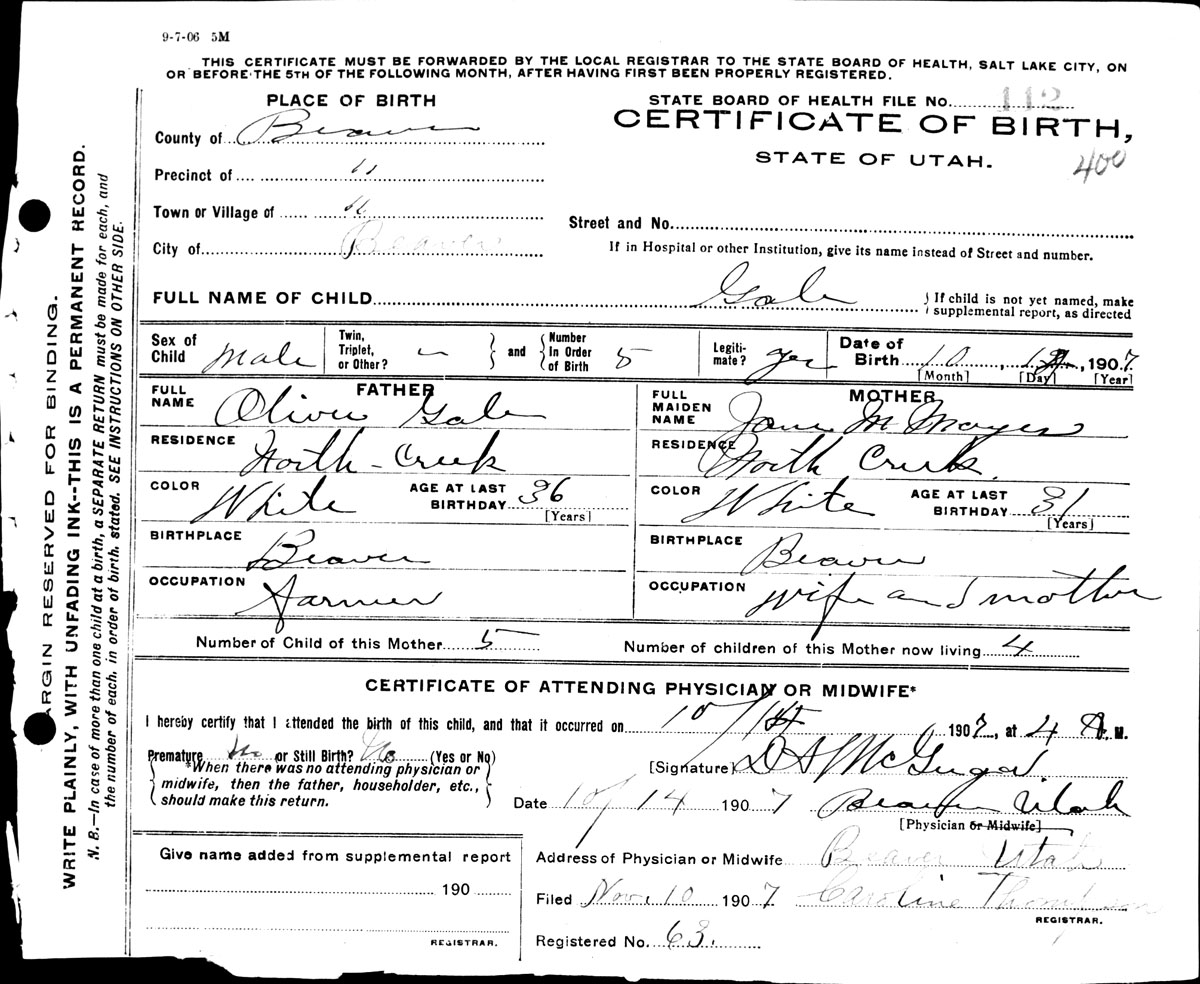 9-7-06 5M
THIS CERTIFICATE MUST BE FORWARDED BY THE LOCAL REGISTRAR TO THE STATE BOARD OF HEALTH, SALT LAKE CITY, ON
OR BEFORE THE 5TH OF THE FOLLOWING MONTH, AFTER HAVING FIRST BEEN PROPERLY REGISTERED.
PLACE OF BIRTH
STATE BOARD OF HEALTH FILE No. 112
County of Beaver
CERTIFICATE OF BIRTH,
STATE OF UTAH.
400
Precinct of "
Town or Village of "
Street and No.
City of Beaver
If in Hospital or other Institution, give its name instead of Street and number.
FULL NAME OF CHILD Gale
} If child is not yet named, make
} supplemental report, as directed
Sex of Child Male
Twin, Triplet, or Other? –
and
Number In Order of Birth 5
Legiti- mate? Yes
Date of Birth 10, , 1907
[Month] [Day] [Year]
FATHER
FULL NAME Oliver Gale
MOTHER
FULL MAIDEN NAME M
RESIDENCE North-Creek
RESIDENCE North Creek
COLOR White
AGE AT LAST BIRTHDAY 36
[Years]
COLOR White
AGE AT LAST BIRTHDAY 31
[Years]
BIRTHPLACE Beaver
BIRTHPLACE Beaver
OCCUPATION Farmer
OCCUPATION wife and mother
Number of Child of this Mother 5
Number of children of this Mother now living 4
CERTIFICATE OF ATTENDING PHYSICIAN OR MIDWIFE*
I hereby certify that I attended the birth of this child, and that it occurred on 10/ 1907, at 4 A. M.
Premature no or Still Birth? No (Yes or No)
*When there was no attending physician or
midwife, then the father, householder, etc.,
should make this return.
[Signature]
Date 10/14 1907
Beaver Utah
[Physician or Midwife]
Give name added from supplemental report
190
REGISTRAR.
Address of Physician or Midwife Beaver Utah
Filed Nov. 10 1907 Caroline Thompson
REGISTRAR.
Registered No. 63.
MARGIN RESERVED FOR BINDING.
WRITE PLAINLY, WITH UNFADING INK--THIS IS A PERMANENT RECORD.
N. B.—In case of more than one child at a birth, a SEPARATE RETURN must be made for each, and
the number of each, in order of birth, stated. SEE INSTRUCTIONS ON OTHER SIDE.